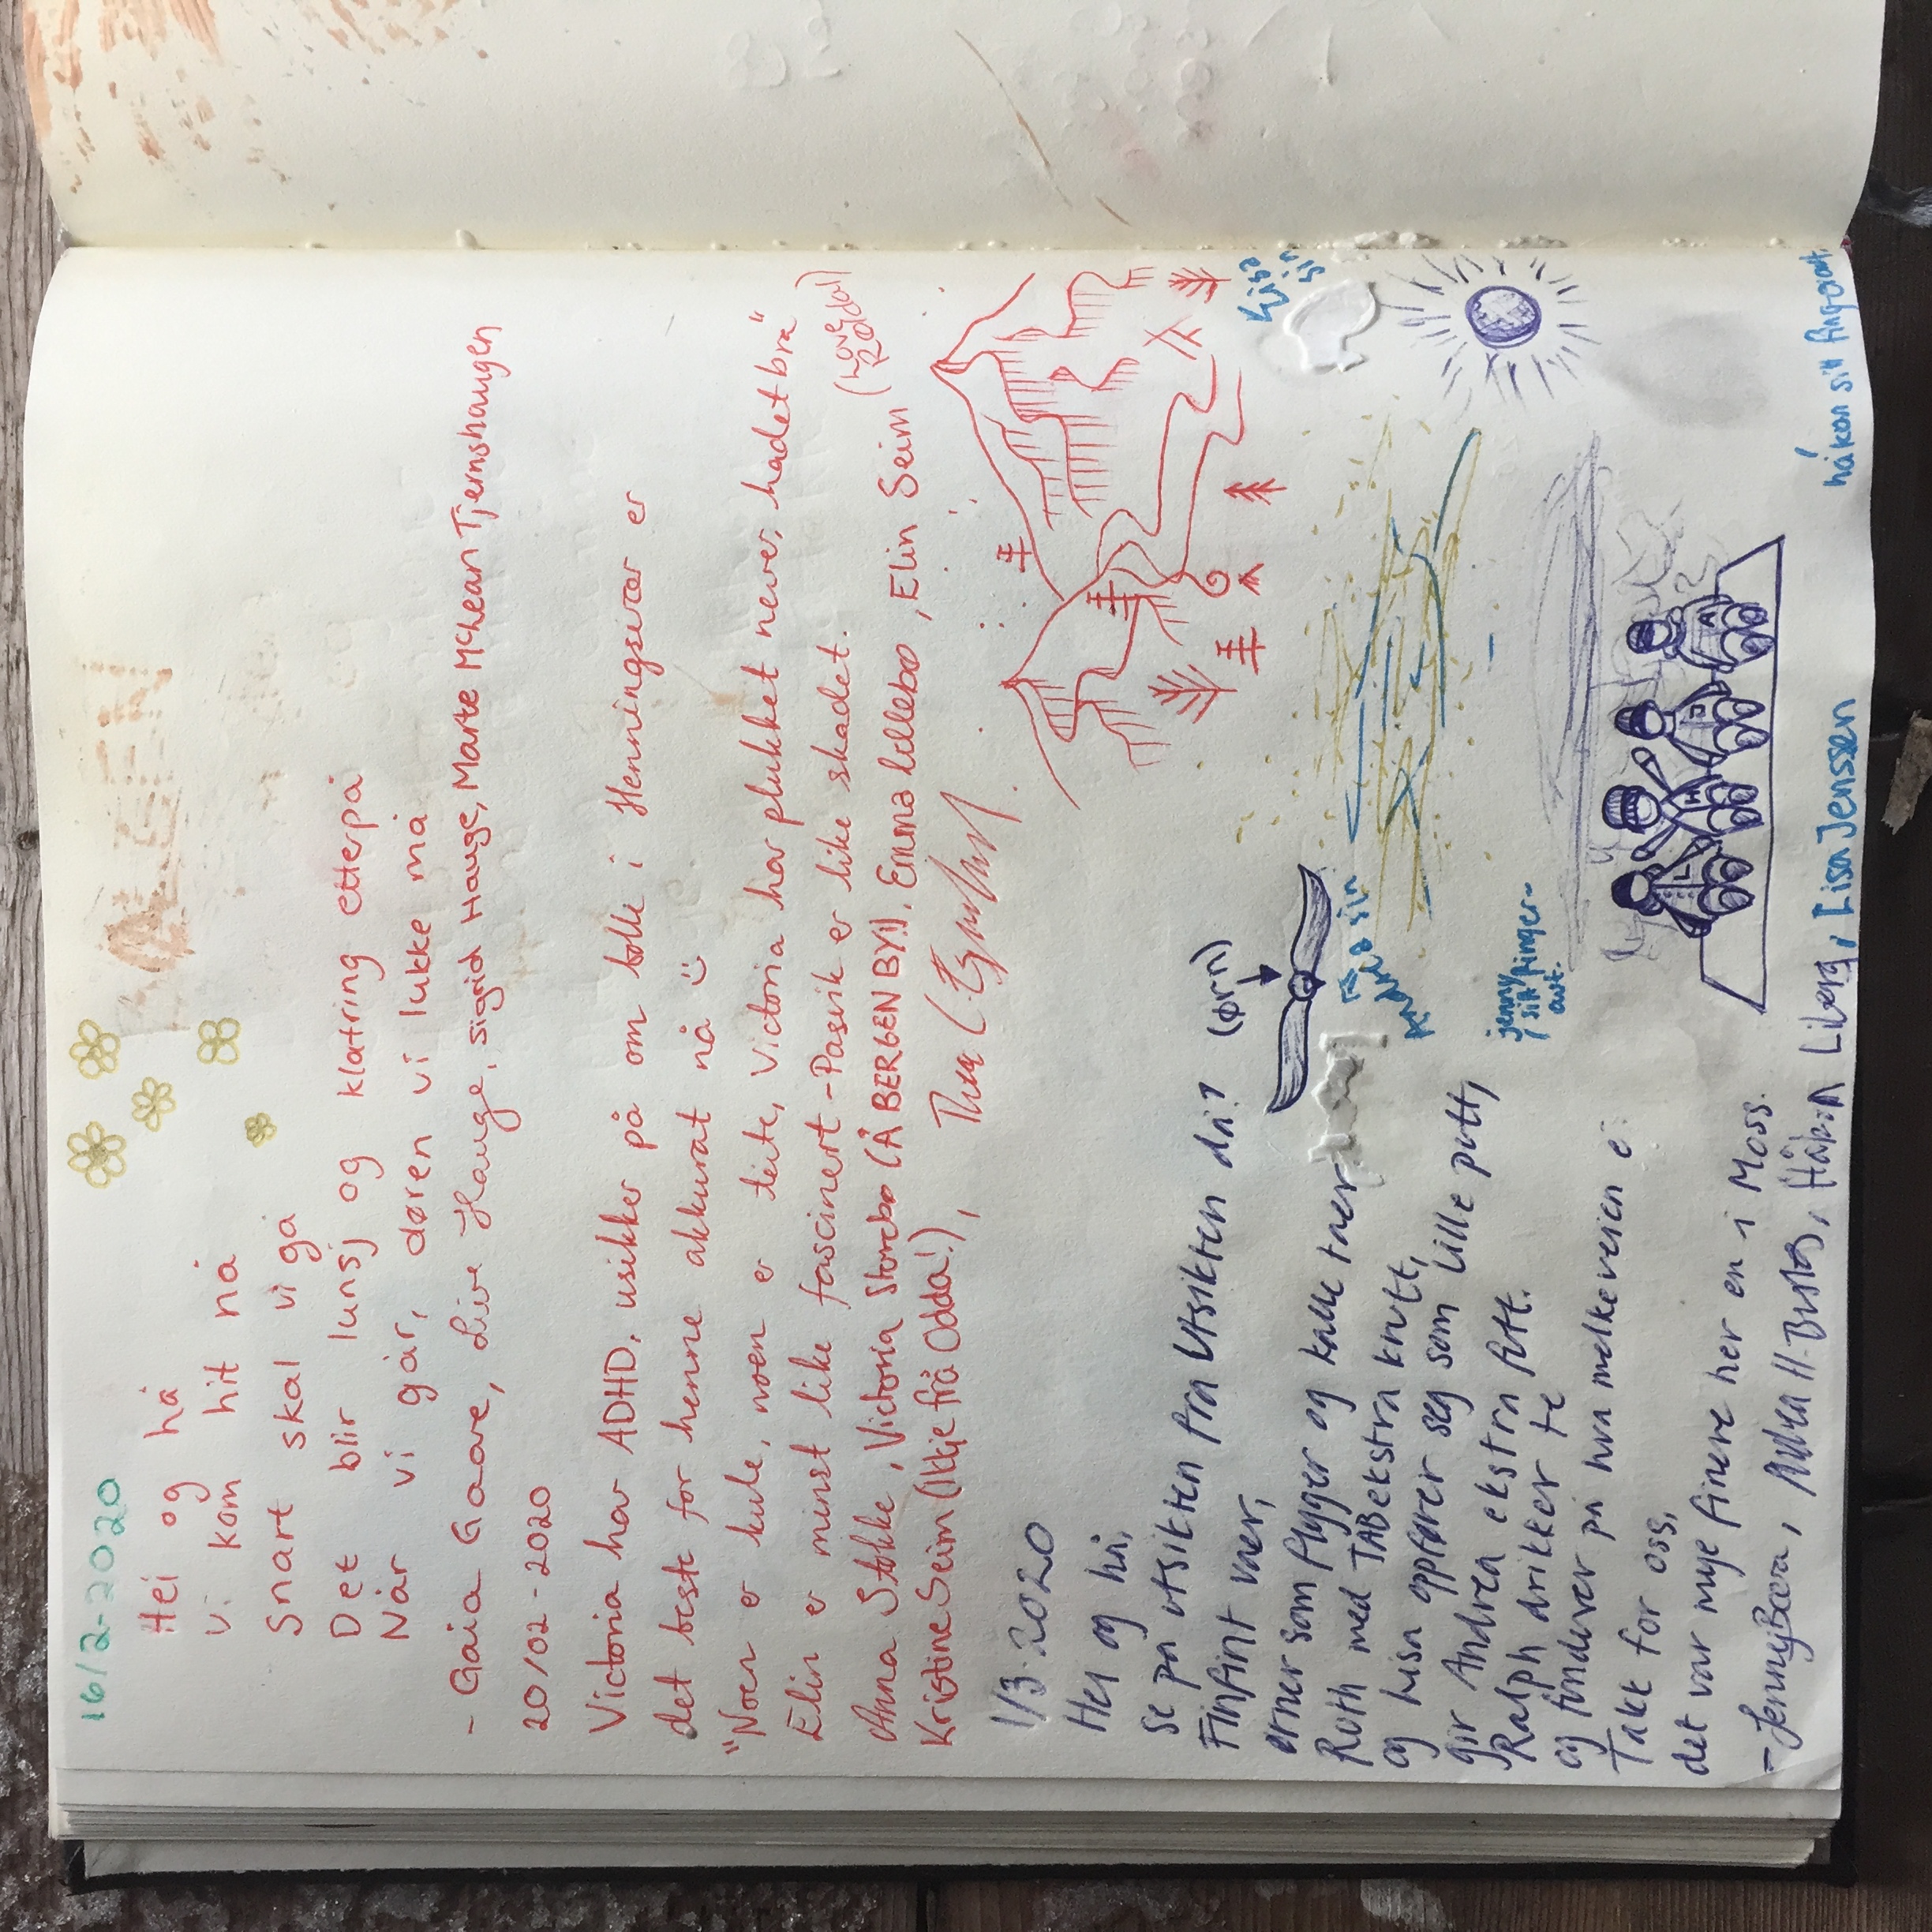 16/2-2020
Hei og hå
vi kom hit nå
Snart skal vi gå
Det blir lunsj og klatring etterpå
Når vi går, døren vi lukke må
- Gaia Gaare, Live Hauge, sigrid Hauge, Marte McLean Tjernshaugen
20/02-2020
Victoria har ADHD, usikker på om folk i Henningsvær er
det beste for henne akkurat nå
"Noen e kule, noen e teite, Victoria har plukket never, hadet bra"
Elin e minst like fascinert - Pasvik er like skadet.
Anna Stokke, Victoria Storebø (Å BERGEN BY!), Emma Lillebø, Elin Seim
Kristine Seim (Ikkje frå Odda!), Thea
1/3-2020
Hei og hå,
se på utsikten fra Utsikten då?
Finfint vær,
ørner som flyger og kalle tær
Ruth med TAB ekstra knutt,
og Lisa oppfører seg som Lille putt,
gir Andrea ekstra futt.
Ralph drikker te
og funderer på hva melkeveien e
Takk for oss,
det var mye finere her en i Moss.
- Jenny Bæra, Håkon Liberg, Lisa Jenssen
(ørn)
Lisa
sin
sin
jenny
sitt finger-
avt.
håkon sitt fingeravt.